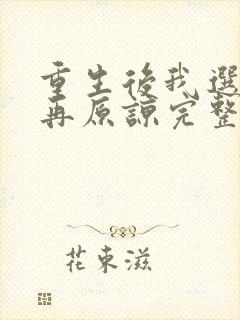 重生後我選
再原諒完整
花東滋